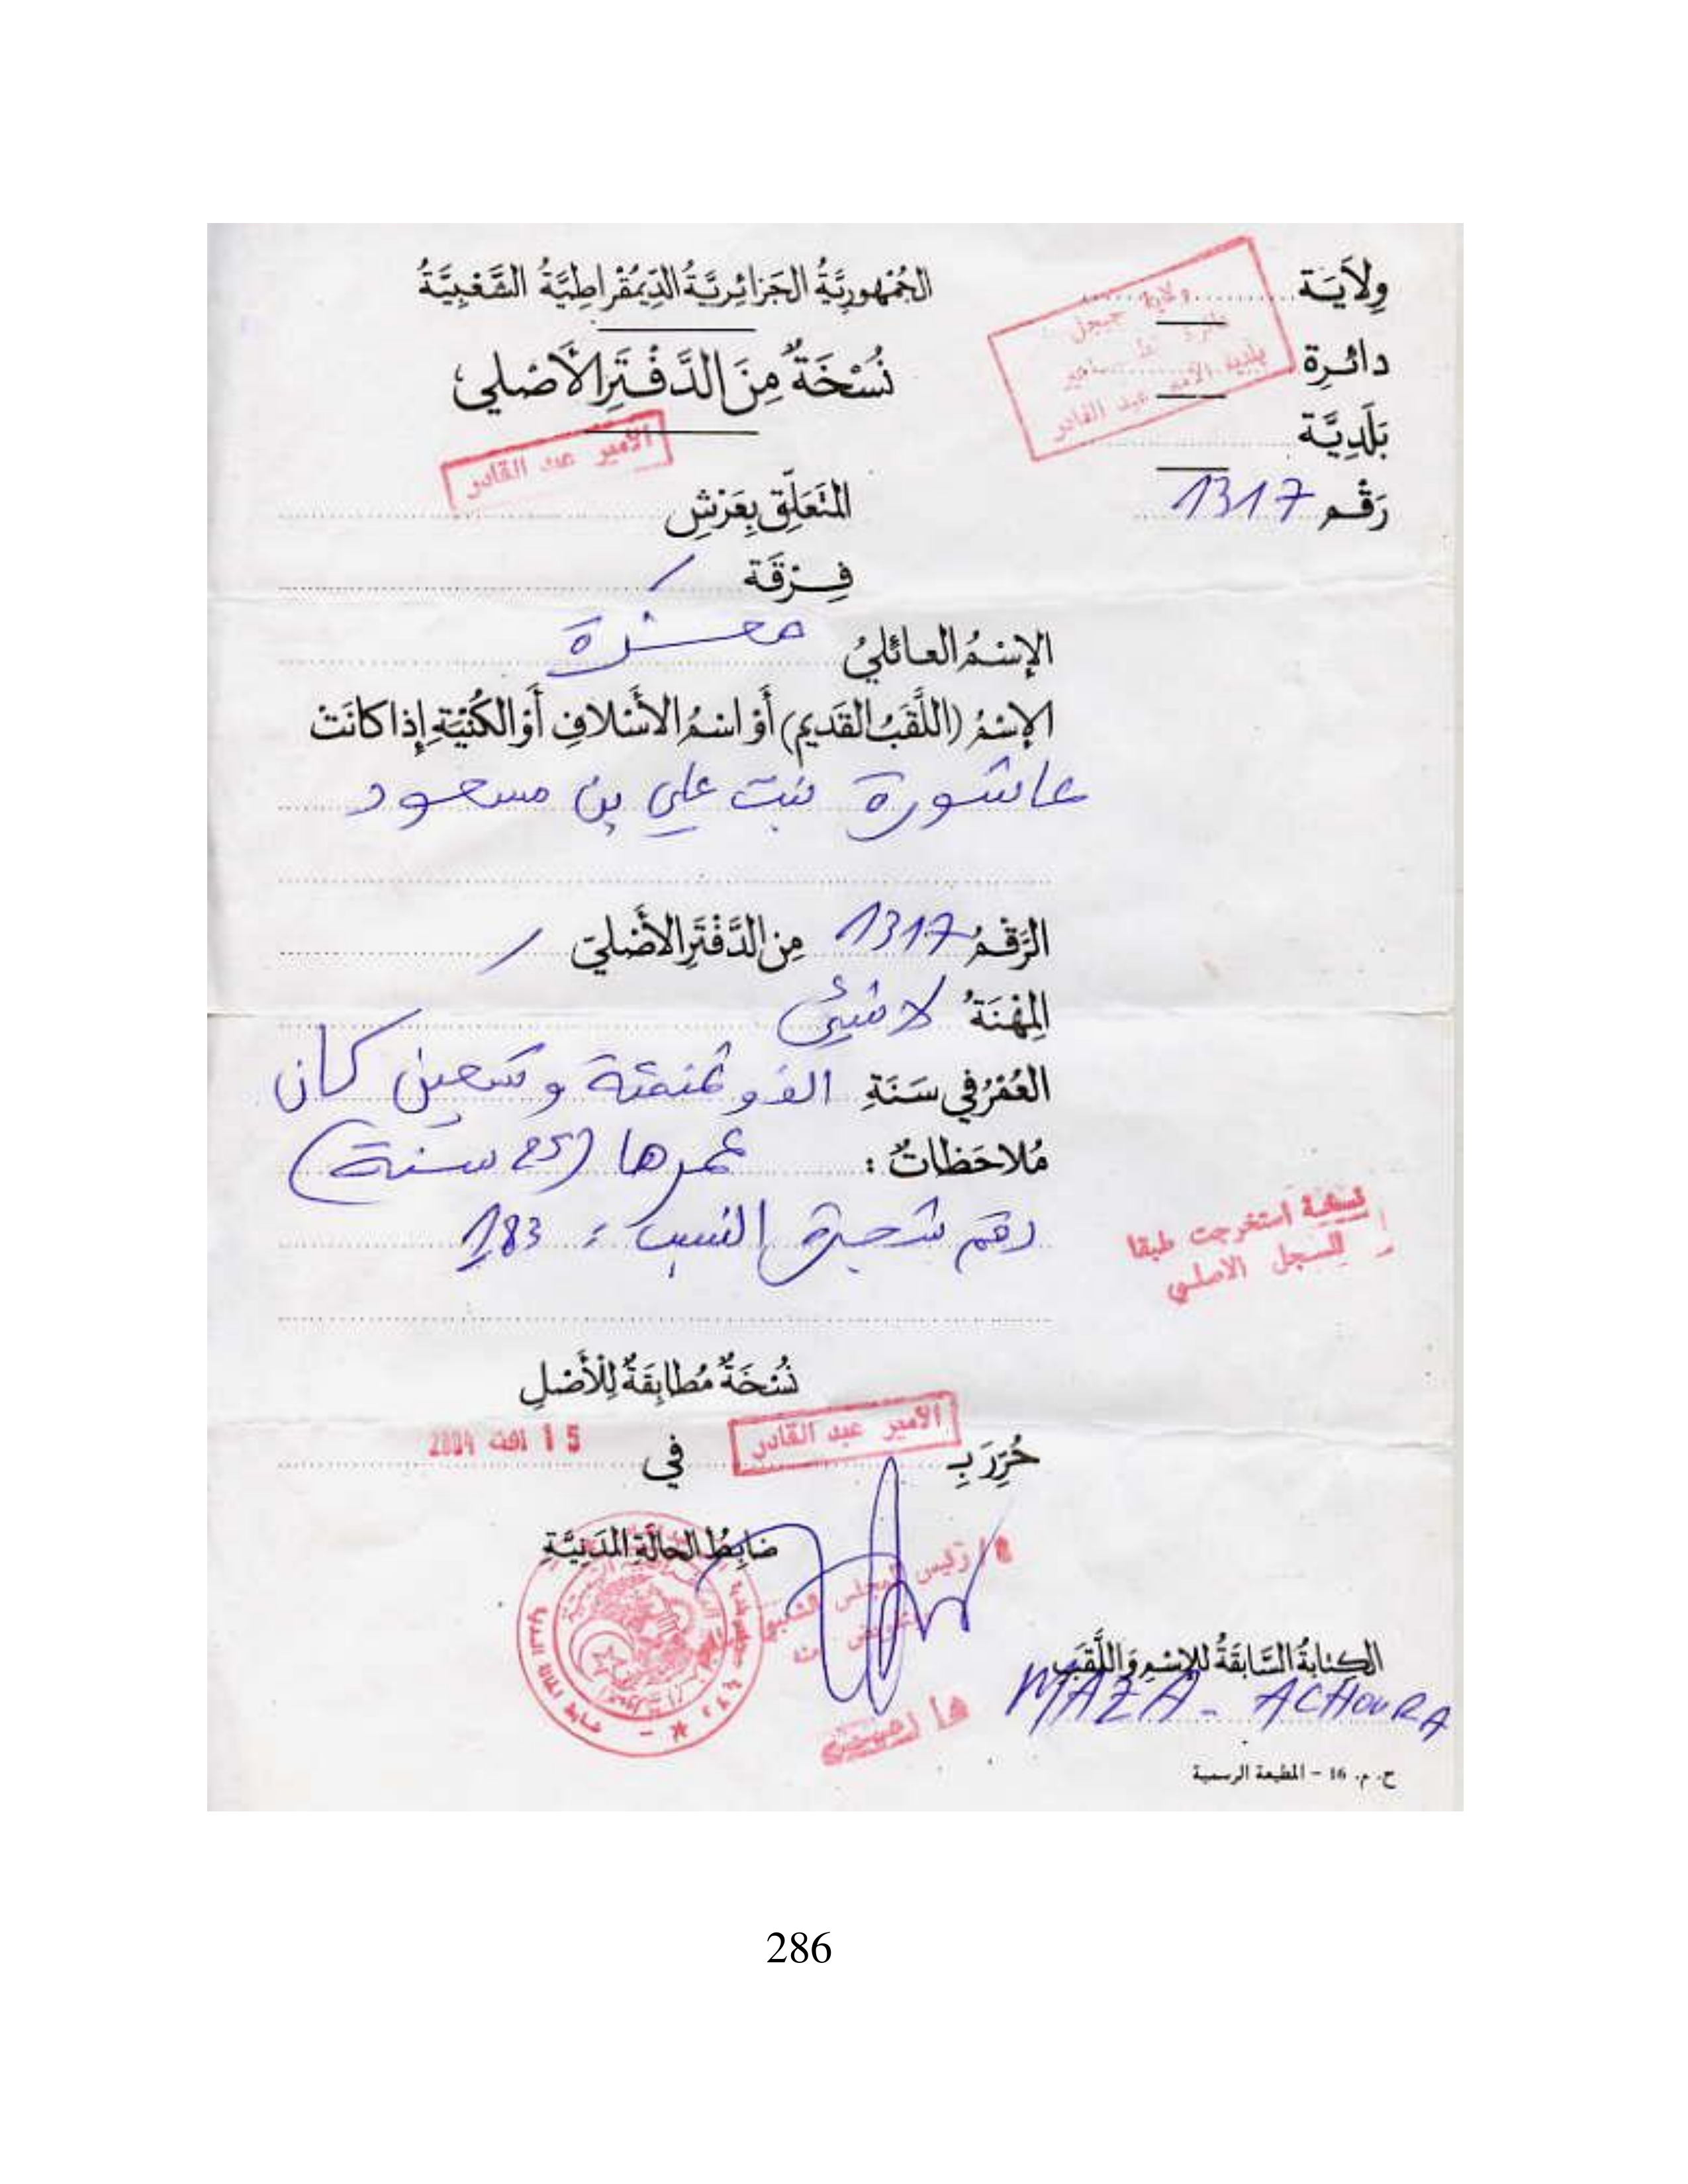 الجُمْهورِيَّةُ الجَزائِرِيَّةُ الدِّيمُقْراطِيَّةُ الشَّعْبِيَّةُ
نُسْخَةٌ مِنَ الدَّفْتَرِ الأَصْلي
وِلاَيَة
دائرة
بَلَدِيَّة
رَقْم 1317
ولاية جيجل
بلدية الأمير عبد القادر
الأمير عبد القادر
المتَعَلِّق بِعَرْشِ
فِرْقَة /
الإسْمُ العائليُ معزة
الإسْمُ (اللَّقَبُ القَديم) أَوْ اسْمُ الأَسْلافِ أَوْ الكُنْيَةِ إذا كانَتْ
عاشورة بنت علي بن مسعود
الرَّقْمُ 1317 مِن الدَّفْتَرِ الأَصْليّ /
المِهْنَةُ لا شيئ
العُمْرُ في سَنَةِ الف و ثمنمئة و تسعين كان
مُلاحَظاتٌ : عمرها (25 سنة)
رقم شجرة النسب : 183
نسخة استخرجت طبقا
للسجل الاصلي
نُسْخَةٌ مُطابِقَةٌ لِلْأَصْلِ
حُرِّرَ بِ الأمير عبد القادر في 15 اوت 2004
ضابِطُ الحالَةِ المَدَنِيَّةِ
رئيس المجلس الشعبي
الكِتابَةُ السَّابِقَةُ للإِسْمِ وَاللَّقَبِ
MAZA - ACHOURA
ح. م. 16 - المطبعة الرسمية
286